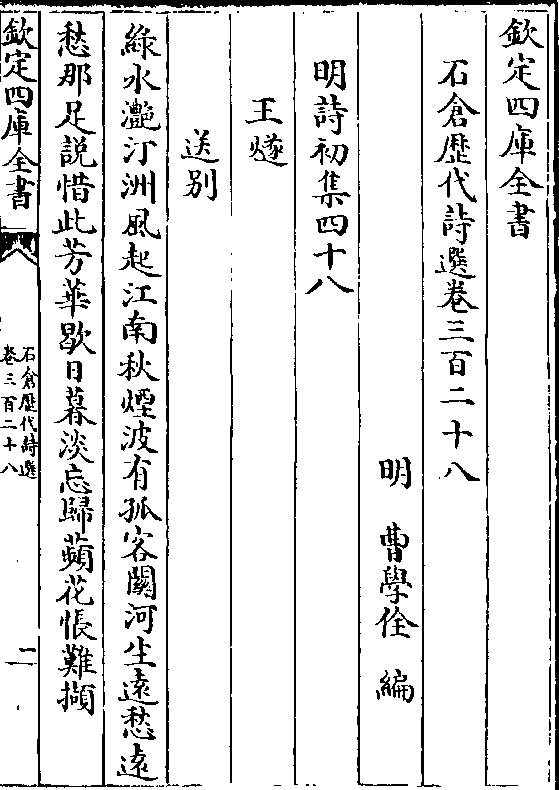 欽定四庫全書
石倉歴代詩選卷三百二十八
明 曹學佺 編
明詩初集四十八
王燧
送别
綠水灔汀洲風起江南秋煙波有孤客關河生遠愁遠
愁那足説惜此芳華歇日暮淡忘歸蘋花悵難擷
欽定四庫全書
石倉歴代詩選
卷三百二十八
二